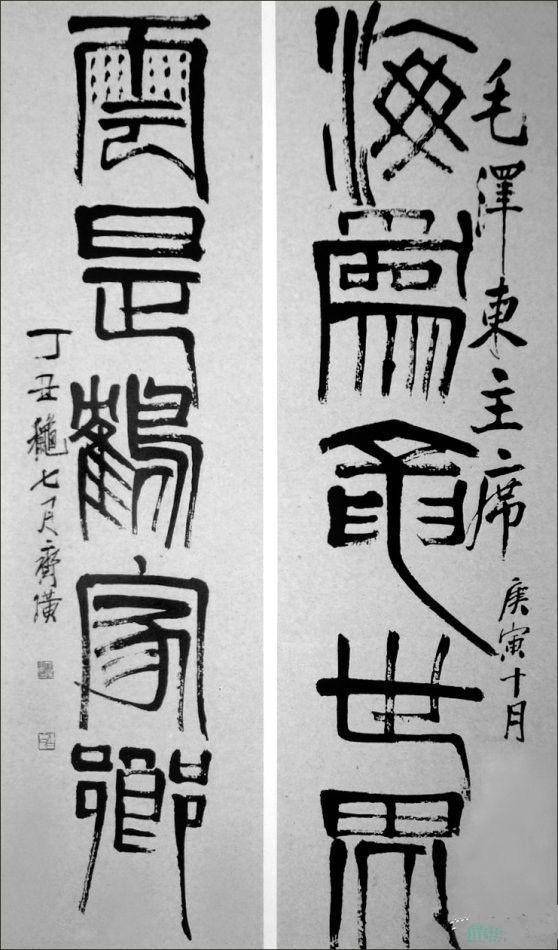 毛澤東主席
庚寅十月
海為龍世界
雲是鶴家鄉
丁丑穐七月齊璜